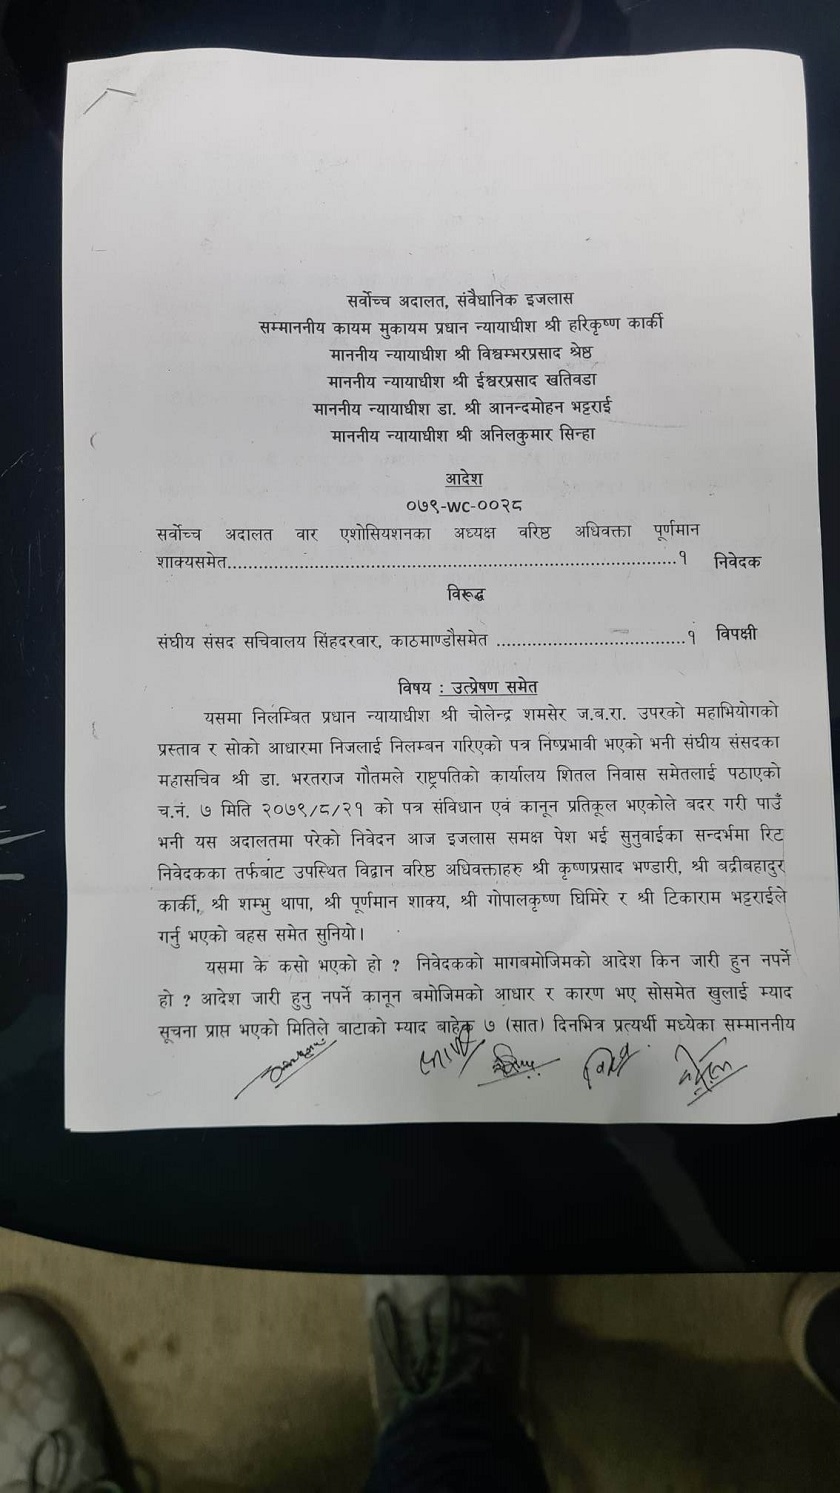 सर्वोच्च अदालत, संवैधानिक इजलास
सम्माननीय कायम मुकायम प्रधान न्यायाधीश श्री हरिकृष्ण कार्की
माननीय न्यायाधीश श्री विश्वम्भरप्रसाद श्रेष्ठ
माननीय न्यायाधीश श्री ईश्वरप्रसाद खतिवडा
माननीय न्यायाधीश डा. श्री आनन्दमोहन भट्टराई
माननीय न्यायाधीश श्री अनिलकुमार सिन्हा
आदेश
०७९-WC-००२८
सर्वोच्च अदालत वार एशोसियशनका अध्यक्ष वरिष्ठ अधिवक्ता पूर्णमान
शाक्यसमेत.............................................................................१ निवेदक
विरूद्ध
संघीय संसद सचिवालय सिंहदरवार, काठमाण्डौसमेत ......................................१ विपक्षी
विषय : उत्प्रेषण समेत
यसमा निलम्बित प्रधान न्यायाधीश श्री चोलेन्द्र शमसेर ज.ब.रा. उपरको महाभियोगको
प्रस्ताव र सोको आधारमा निजलाई निलम्बन गरिएको पत्र निष्प्रभावी भएको भनी संघीय संसदका
महासचिव श्री डा. भरतराज गौतमले राष्ट्रपतिको कार्यालय शितल निवास समेतलाई पठाएको
च.नं. ७ मिति २०७९/८/२१ को पत्र संविधान एवं कानून प्रतिकूल भएकोले बदर गरी पाउँ
भनी यस अदालतमा परेको निवेदन आज इजलास समक्ष पेश भई सुनुवाईका सन्दर्भमा रिट
निवेदकका तर्फबाट उपस्थित विद्वान वरिष्ठ अधिवक्ताहरु श्री कृष्णप्रसाद भण्डारी, श्री बद्रीबहादुर
कार्की, श्री शम्भु थापा, श्री पूर्णमान शाक्य, श्री गोपालकृष्ण घिमिरे र श्री टिकाराम भट्टराईले
गर्नु भएको बहस समेत सुनियो।
यसमा के कसो भएको हो ? निवेदकको मागबमोजिमको आदेश किन जारी हुन नपर्ने
हो ? आदेश जारी हुनु नपर्ने कानून बमोजिमको आधार र कारण भए सोसमेत खुलाई म्याद
सूचना प्राप्त भएको मितिले बाटाको म्याद बाहेक ७ (सात) दिनभित्र प्रत्यर्थी मध्येका सम्माननीय